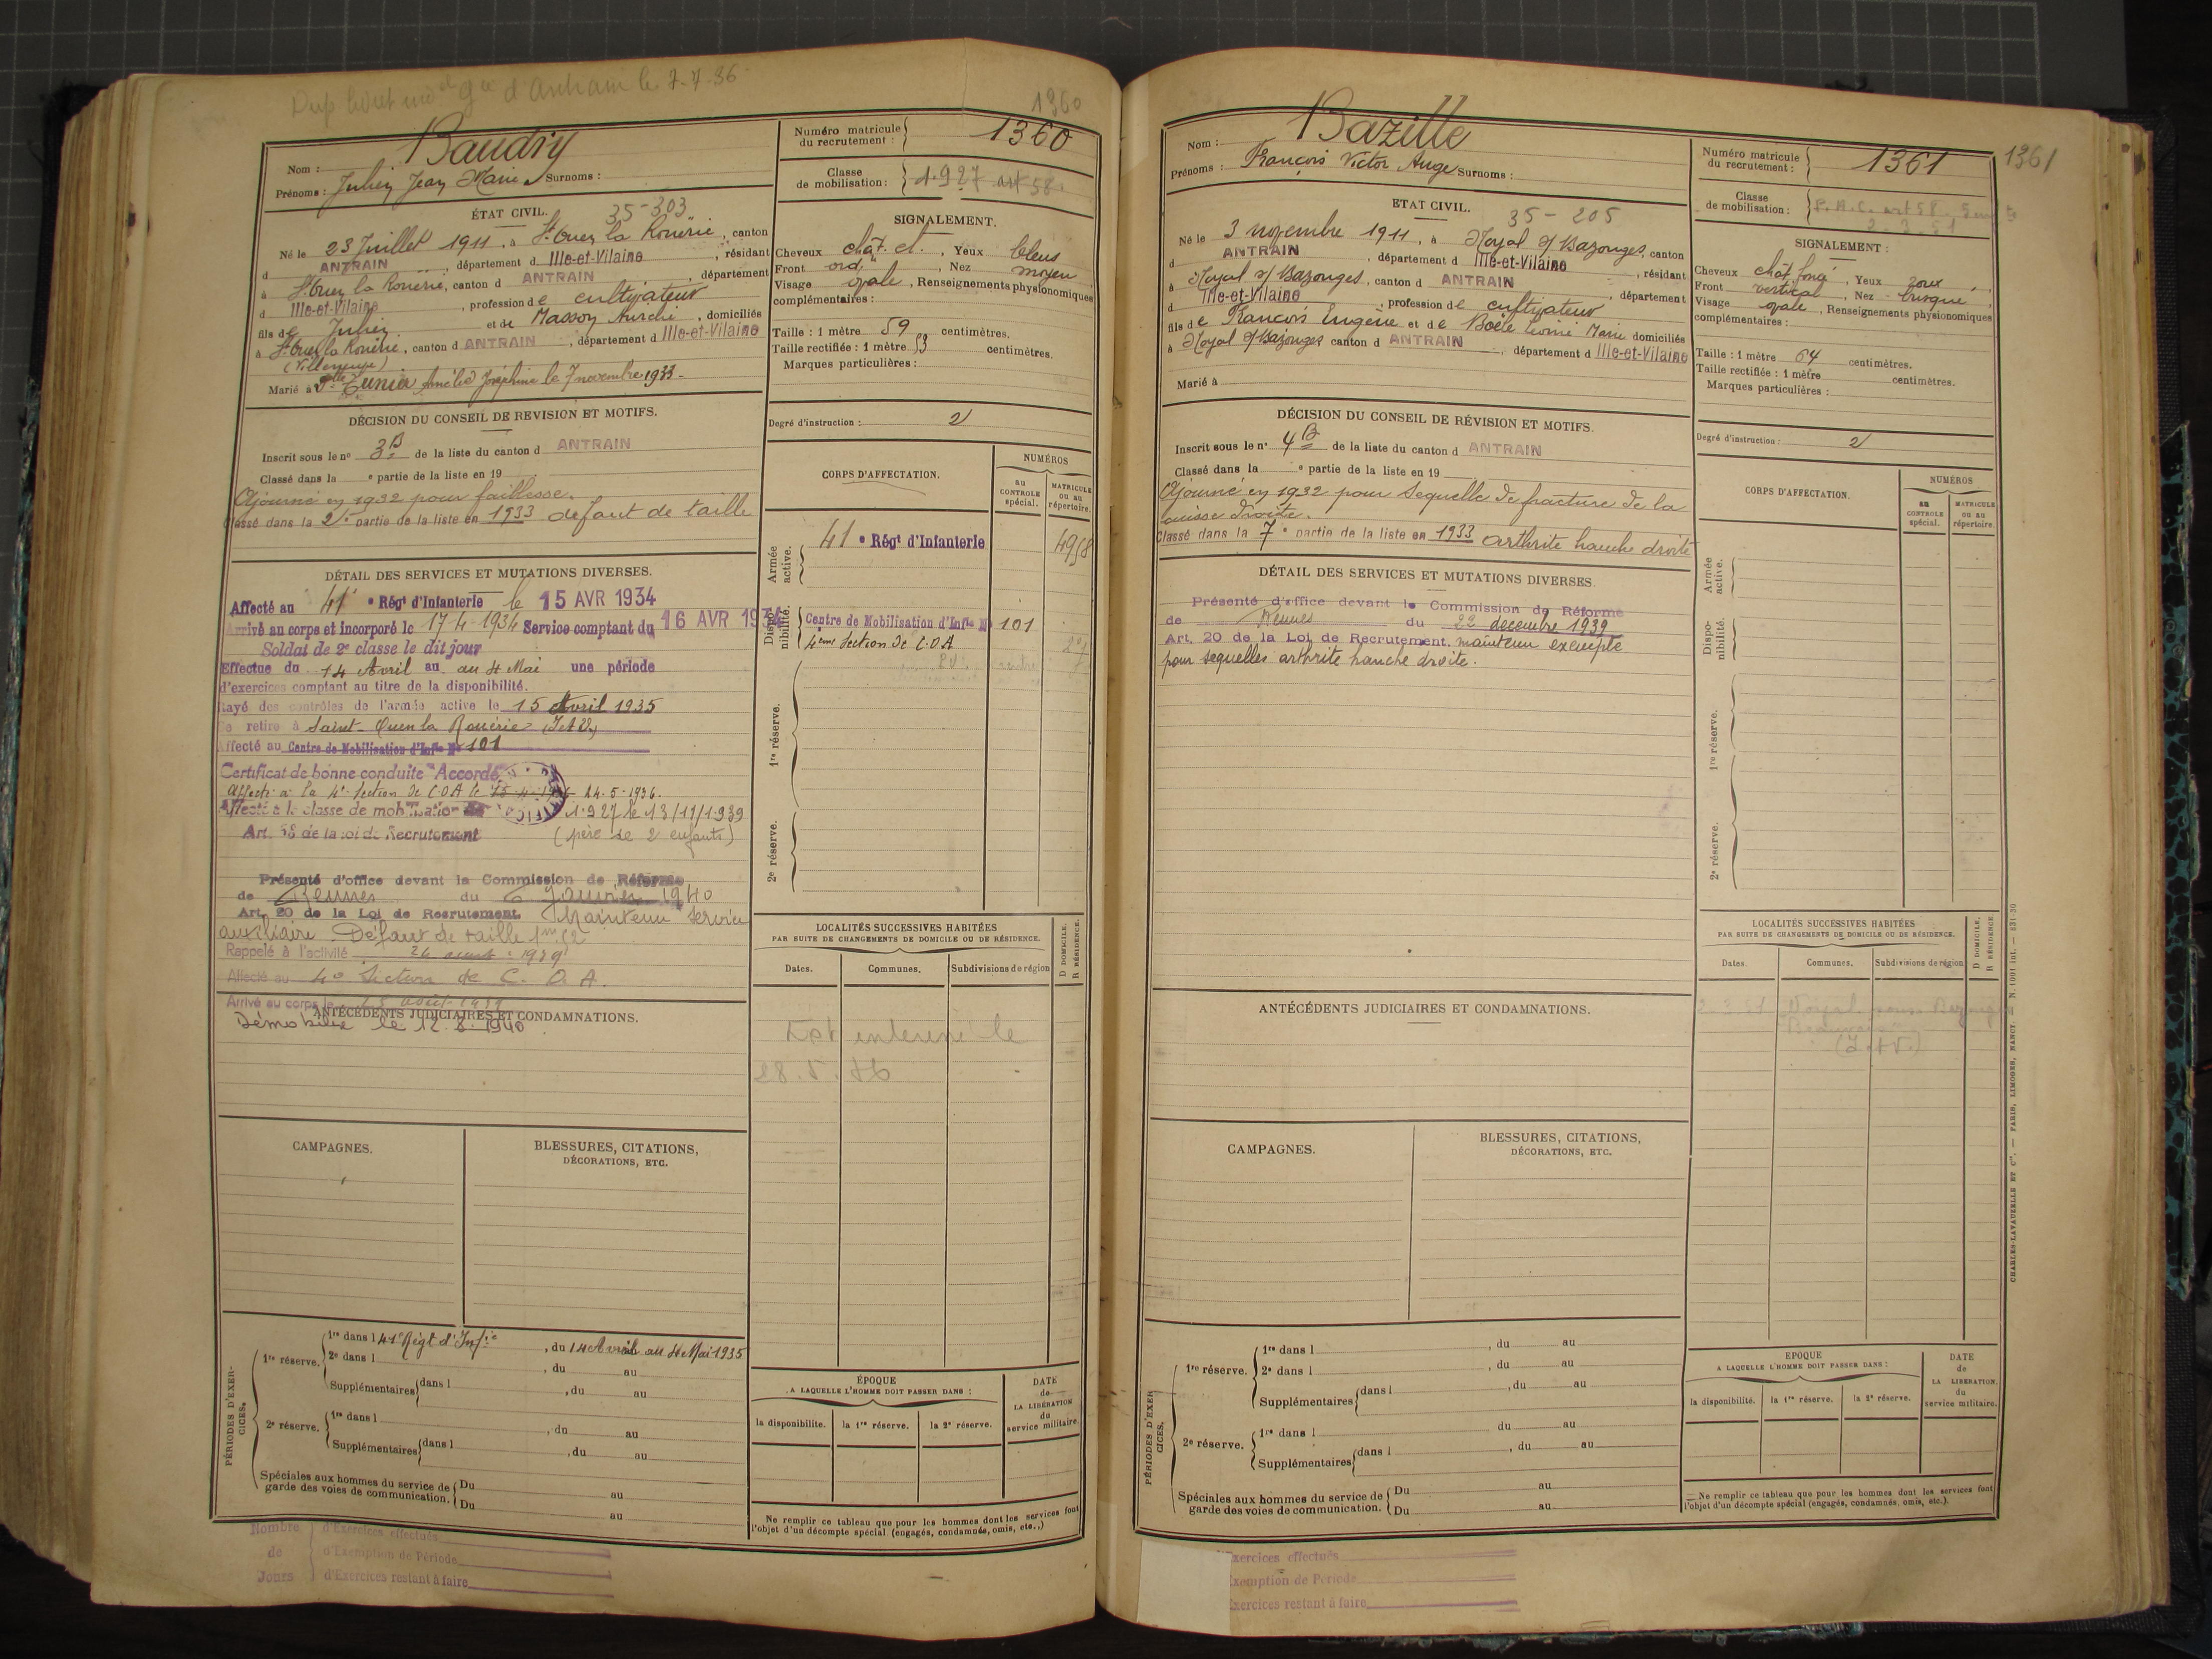 Dup livret ind gie d'Antrain le 7-7-36
1360
Nom : Baudry
Prénoms : Julien Jean Marie Surnoms :
Numéro matricule du recrutement : 1360
Classe de mobilisation : 1.927 art 58.
ÉTAT CIVIL.
35-303
Né le 23 Juillet 1911, à St Ouen la Rouërie, canton
d ANTRAIN, département d Ille-et-Vilaine, résidant
à St Ouen la Rouërie, canton d ANTRAIN, département
d Ille-et-Vilaine, profession de cultivateur
fils de Julien et de Masson Aurélie, domiciliés
à St Ouen la Rouërie, canton d ANTRAIN, département d Ille-et-Vilaine
(Villeneuve)
Marié à Amélie Joséphine le 7 novembre 1933-
SIGNALEMENT.
Cheveux chât. cl., Yeux bleus
Front ord., Nez moyen
Visage ovale, Renseignements physionomiques
complémentaires :
Taille : 1 mètre 59 centimètres.
Taille rectifiée : 1 mètre 53 centimètres.
Marques particulières :
Degré d'instruction : 2
DÉCISION DU CONSEIL DE REVISION ET MOTIFS.
Inscrit sous le nº 3 B de la liste du canton d ANTRAIN
Classé dans la e partie de la liste en 19
Ajourné en 1932 pour faiblesse.
Classé dans la 2e partie de la liste en 1933 défaut de taille
DÉTAIL DES SERVICES ET MUTATIONS DIVERSES.
Affecté au 41 e Régt d'Infanterie le 15 AVR 1934
Arrivé au corps et incorporé le 17-4-1934 Service comptant du 16 AVR 1934
Soldat de 2e classe le dit jour
Effectue du 14 Avril au au 4 Mai une période
d'exercices comptant au titre de la disponibilité.
Rayé des contrôles de l'armée active le 15 Avril 1935
Se retire à Saint-Ouen la Rouërie (I et V.)
Affecté au Centre de Mobilisation d'Infie Nº 101
Certificat de bonne conduite "Accordé"
Affecté à la 4e Section de C.O.A le 14-5-1936.
Affecté à la classe de mobilisation 1927 le 13/11/1939
Art. 58 de la loi de Recrutement (père de 2 enfants)
Présenté d'office devant la Commission de Réforme
de Rennes du 6 Janvier 1940
Art. 20 de la Loi de Recrutement. Maintenu service
auxiliaire. Défaut de taille 1m52
Rappelé à l'activité 26 aout 1939
Affecté au 4e Section de C. O. A.
Arrivé au corps le août 1939
Démobilisé le 12.8.1940
ANTÉCÉDENTS JUDICIAIRES ET CONDAMNATIONS.
CAMPAGNES.
BLESSURES, CITATIONS, DÉCORATIONS, ETC.
CORPS D'AFFECTATION.
NUMÉROS
au CONTROLE spécial.
MATRICULE ou au répertoire.
Armée active.
41 e Régt d'Infanterie 4958
Disponibilité.
Centre de Mobilisation d'Infie Nº 101
4ème Section de C.O.A
1re réserve.
2e réserve.
LOCALITÉS SUCCESSIVES HABITÉES
PAR SUITE DE CHANGEMENTS DE DOMICILE OU DE RÉSIDENCE.
D DOMICILE.
R RÉSIDENCE.
Dates. Communes. Subdivisions de région
Est le
PÉRIODES D'EXERCICES.
1re réserve. 1re dans l 41e Régt d'Infie, du 14 Avril au 4 Mai 1935
2e dans l , du au
Supplémentaires dans l , du au
2e réserve. 1re dans l , du au
Supplémentaires dans l , du au
Spéciales aux hommes du service de garde des voies de communication. Du au
Du au
ÉPOQUE
A LAQUELLE L'HOMME DOIT PASSER DANS :
la disponibilité. la 1re réserve. la 2e réserve.
DATE de LA LIBÉRATION du service militaire.
Ne remplir ce tableau que pour les hommes dont les services font
l'objet d'un décompte spécial (engagés, condamnés, omis, etc..)
Nombre de Jours
d'Exercices effectués
d'Exemption de Période
d'Exercices restant à faire
Nom : Bazille
Prénoms : François Victor Ange Surnoms :
Numéro matricule du recrutement : 1361
1361
Classe de mobilisation :
ETAT CIVIL.
35-205
Né le 3 novembre 1911, à Noyal s/ Bazouges, canton
d ANTRAIN, département d Ille-et-Vilaine, résidant
à Noyal s/ Bazouges, canton d ANTRAIN, département
d Ille-et-Vilaine, profession de cultivateur
fils de François Eugène et de Marie domiciliés
à Noyal s/ Bazouges canton d ANTRAIN, département d Ille-et-Vilaine
Marié à
SIGNALEMENT :
Cheveux chât foncé, Yeux roux,
Front vertical, Nez busqué,
Visage ovale, Renseignements physionomiques
complémentaires :
Taille : 1 mètre 64 centimètres.
Taille rectifiée : 1 mètre centimètres.
Marques particulières :
Degré d'instruction : 2
DÉCISION DU CONSEIL DE RÉVISION ET MOTIFS.
Inscrit sous le nº 4 B de la liste du canton d ANTRAIN
Classé dans la e partie de la liste en 19
Ajourné en 1932 pour Sequelle de fracture de la
cuisse droite.
Classé dans la 7e partie de la liste en 1933 arthrite hanche droite
DÉTAIL DES SERVICES ET MUTATIONS DIVERSES.
Présenté d'office devant la Commission de Réforme
de Rennes du 22 decembre 1939
Art. 20 de la Loi de Recrutement. maintenu exempté
pour sequelles arthrite hanche droite.
ANTÉCÉDENTS JUDICIAIRES ET CONDAMNATIONS.
CAMPAGNES.
BLESSURES, CITATIONS, DÉCORATIONS, ETC.
CORPS D'AFFECTATION.
NUMÉROS
au CONTROLE spécial.
MATRICULE ou au répertoire.
Armée active.
Disponibilité.
1re réserve.
2e réserve.
LOCALITÉS SUCCESSIVES HABITÉES
PAR SUITE DE CHANGEMENTS DE DOMICILE OU DE RÉSIDENCE.
D DOMICILE.
R RÉSIDENCE.
Dates. Communes. Subdivisions de région
2-3-51 Noyal sous Bazouges
(I. et V.)
PÉRIODES D'EXERCICES.
1re réserve. 1re dans l , du au
2e dans l , du au
Supplémentaires dans l , du au
2e réserve. 1re dans l du au
Supplémentaires dans l , du au
Spéciales aux hommes du service de garde des voies de communication. Du au
Du au
EPOQUE
A LAQUELLE L'HOMME DOIT PASSER DANS :
la disponibilité. la 1re réserve. la 2e réserve.
DATE de LA LIBERATION. du service militaire.
Ne remplir ce tableau que pour les hommes dont les services font
l'objet d'un décompte spécial (engagés, condamnés, omis, etc.).
CHARLES-LAVAUZELLE ET Cie. — PARIS, LIMOGES, NANCY.
Exercices effectués
Exemption de Période
Exercices restant à faire